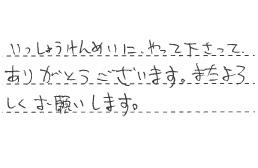 いっしょうけんめいに、やって下さって
ありがとうございます。またよろ
しくお願いします。